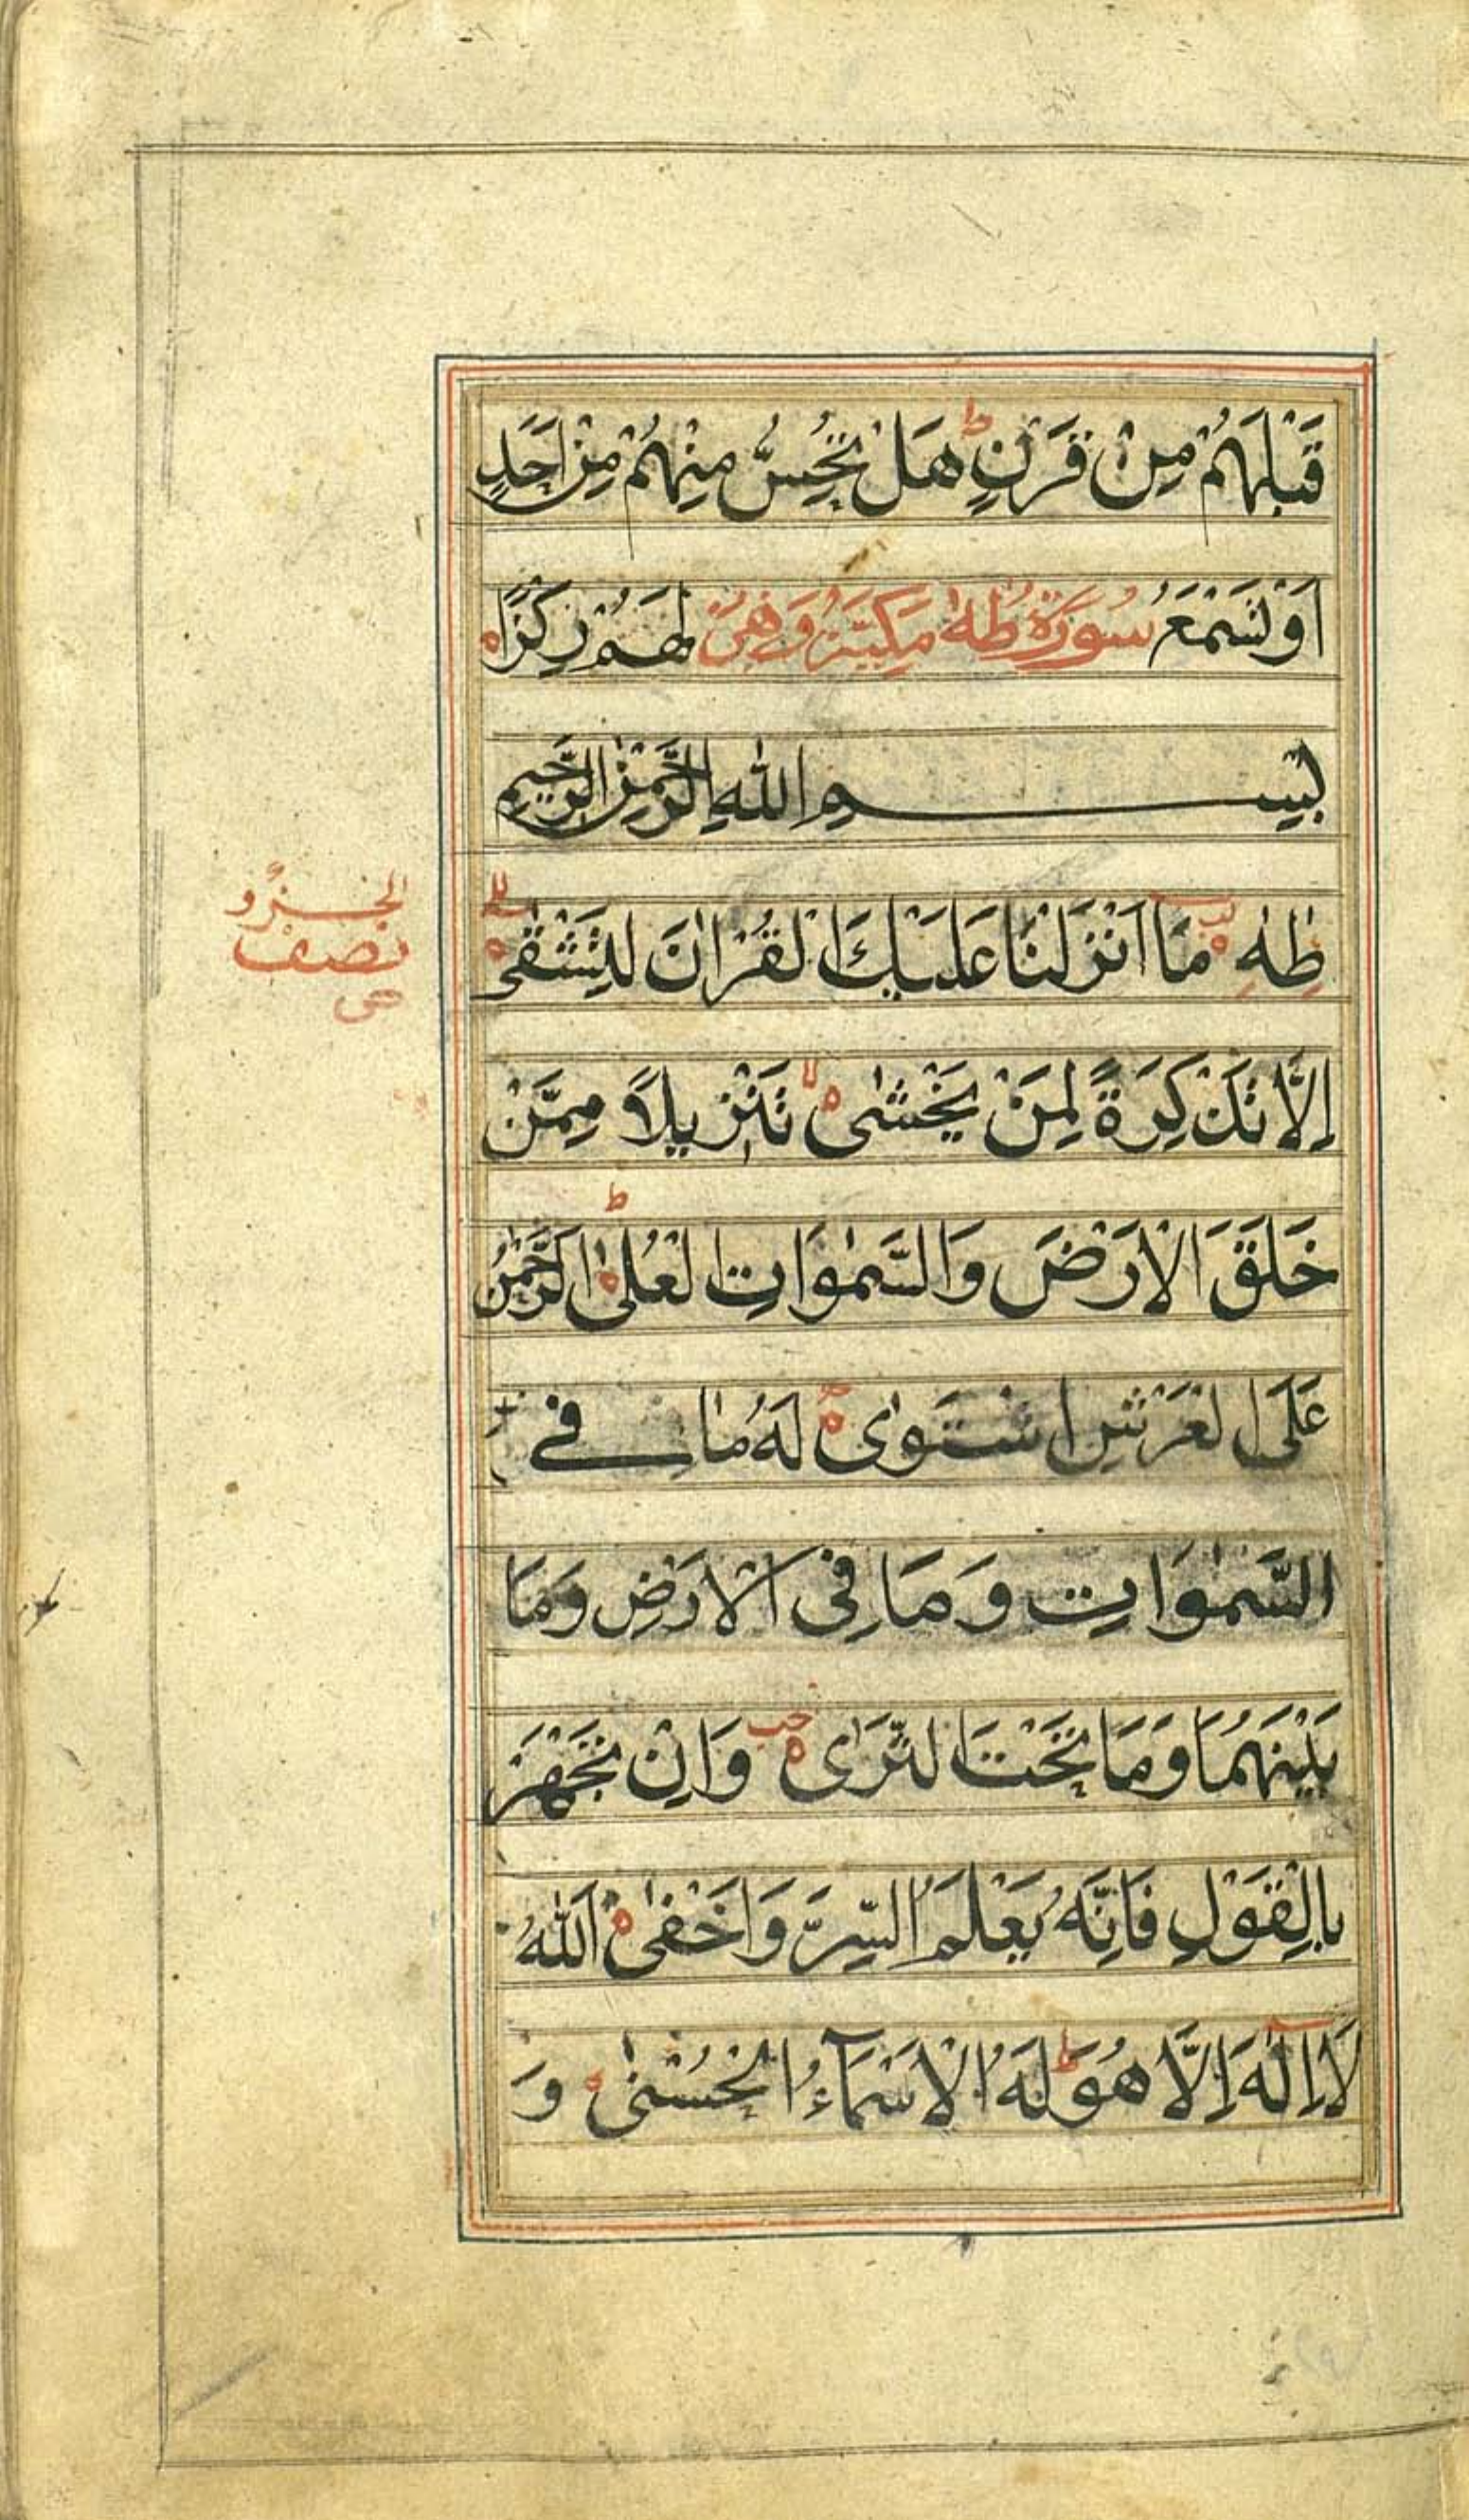 قَبْلَهُمْ مِنْ قَرْنٍ ط هَلْ تُحِسُّ مِنْهُمْ مِنْ اَحَدٍ
اَوْ تَسْمَعُ سُورَةُ طٰهٰ مَكِيَّةٌ وَهِىَ لَهُمْ رِكْزًا
بِسْمِ اللّٰهِ الرَّحْمٰنِ الرَّحِيمِ
طٰهٰ مَا اَنْزَلْنَا عَلَيْكَ الْقُرْاٰنَ لِتَشْقٰى
اِلَّا تَذْكِرَةً لِمَنْ يَخْشٰى لا تَنْزِيلًا مِمَّنْ
خَلَقَ الْاَرْضَ وَالسَّمٰوَاتِ الْعُلٰى ط الرَّحْمٰنُ
عَلَى الْعَرْشِ اسْتَوٰى لَهُ مَا فِى
السَّمٰوَاتِ وَمَا فِى الْاَرْضِ وَمَا
بَيْنَهُمَا وَمَا تَحْتَ الثَّرٰى وَاِنْ تَجْهَرْ
بِالْقَوْلِ فَاِنَّهُ يَعْلَمُ السِّرَّ وَاَخْفٰى اَللّٰهُ
لَا اِلٰهَ اِلَّا هُوَ ط لَهُ الْاَسْمَآءُ الْحُسْنٰى وَ
الجزو
نصف